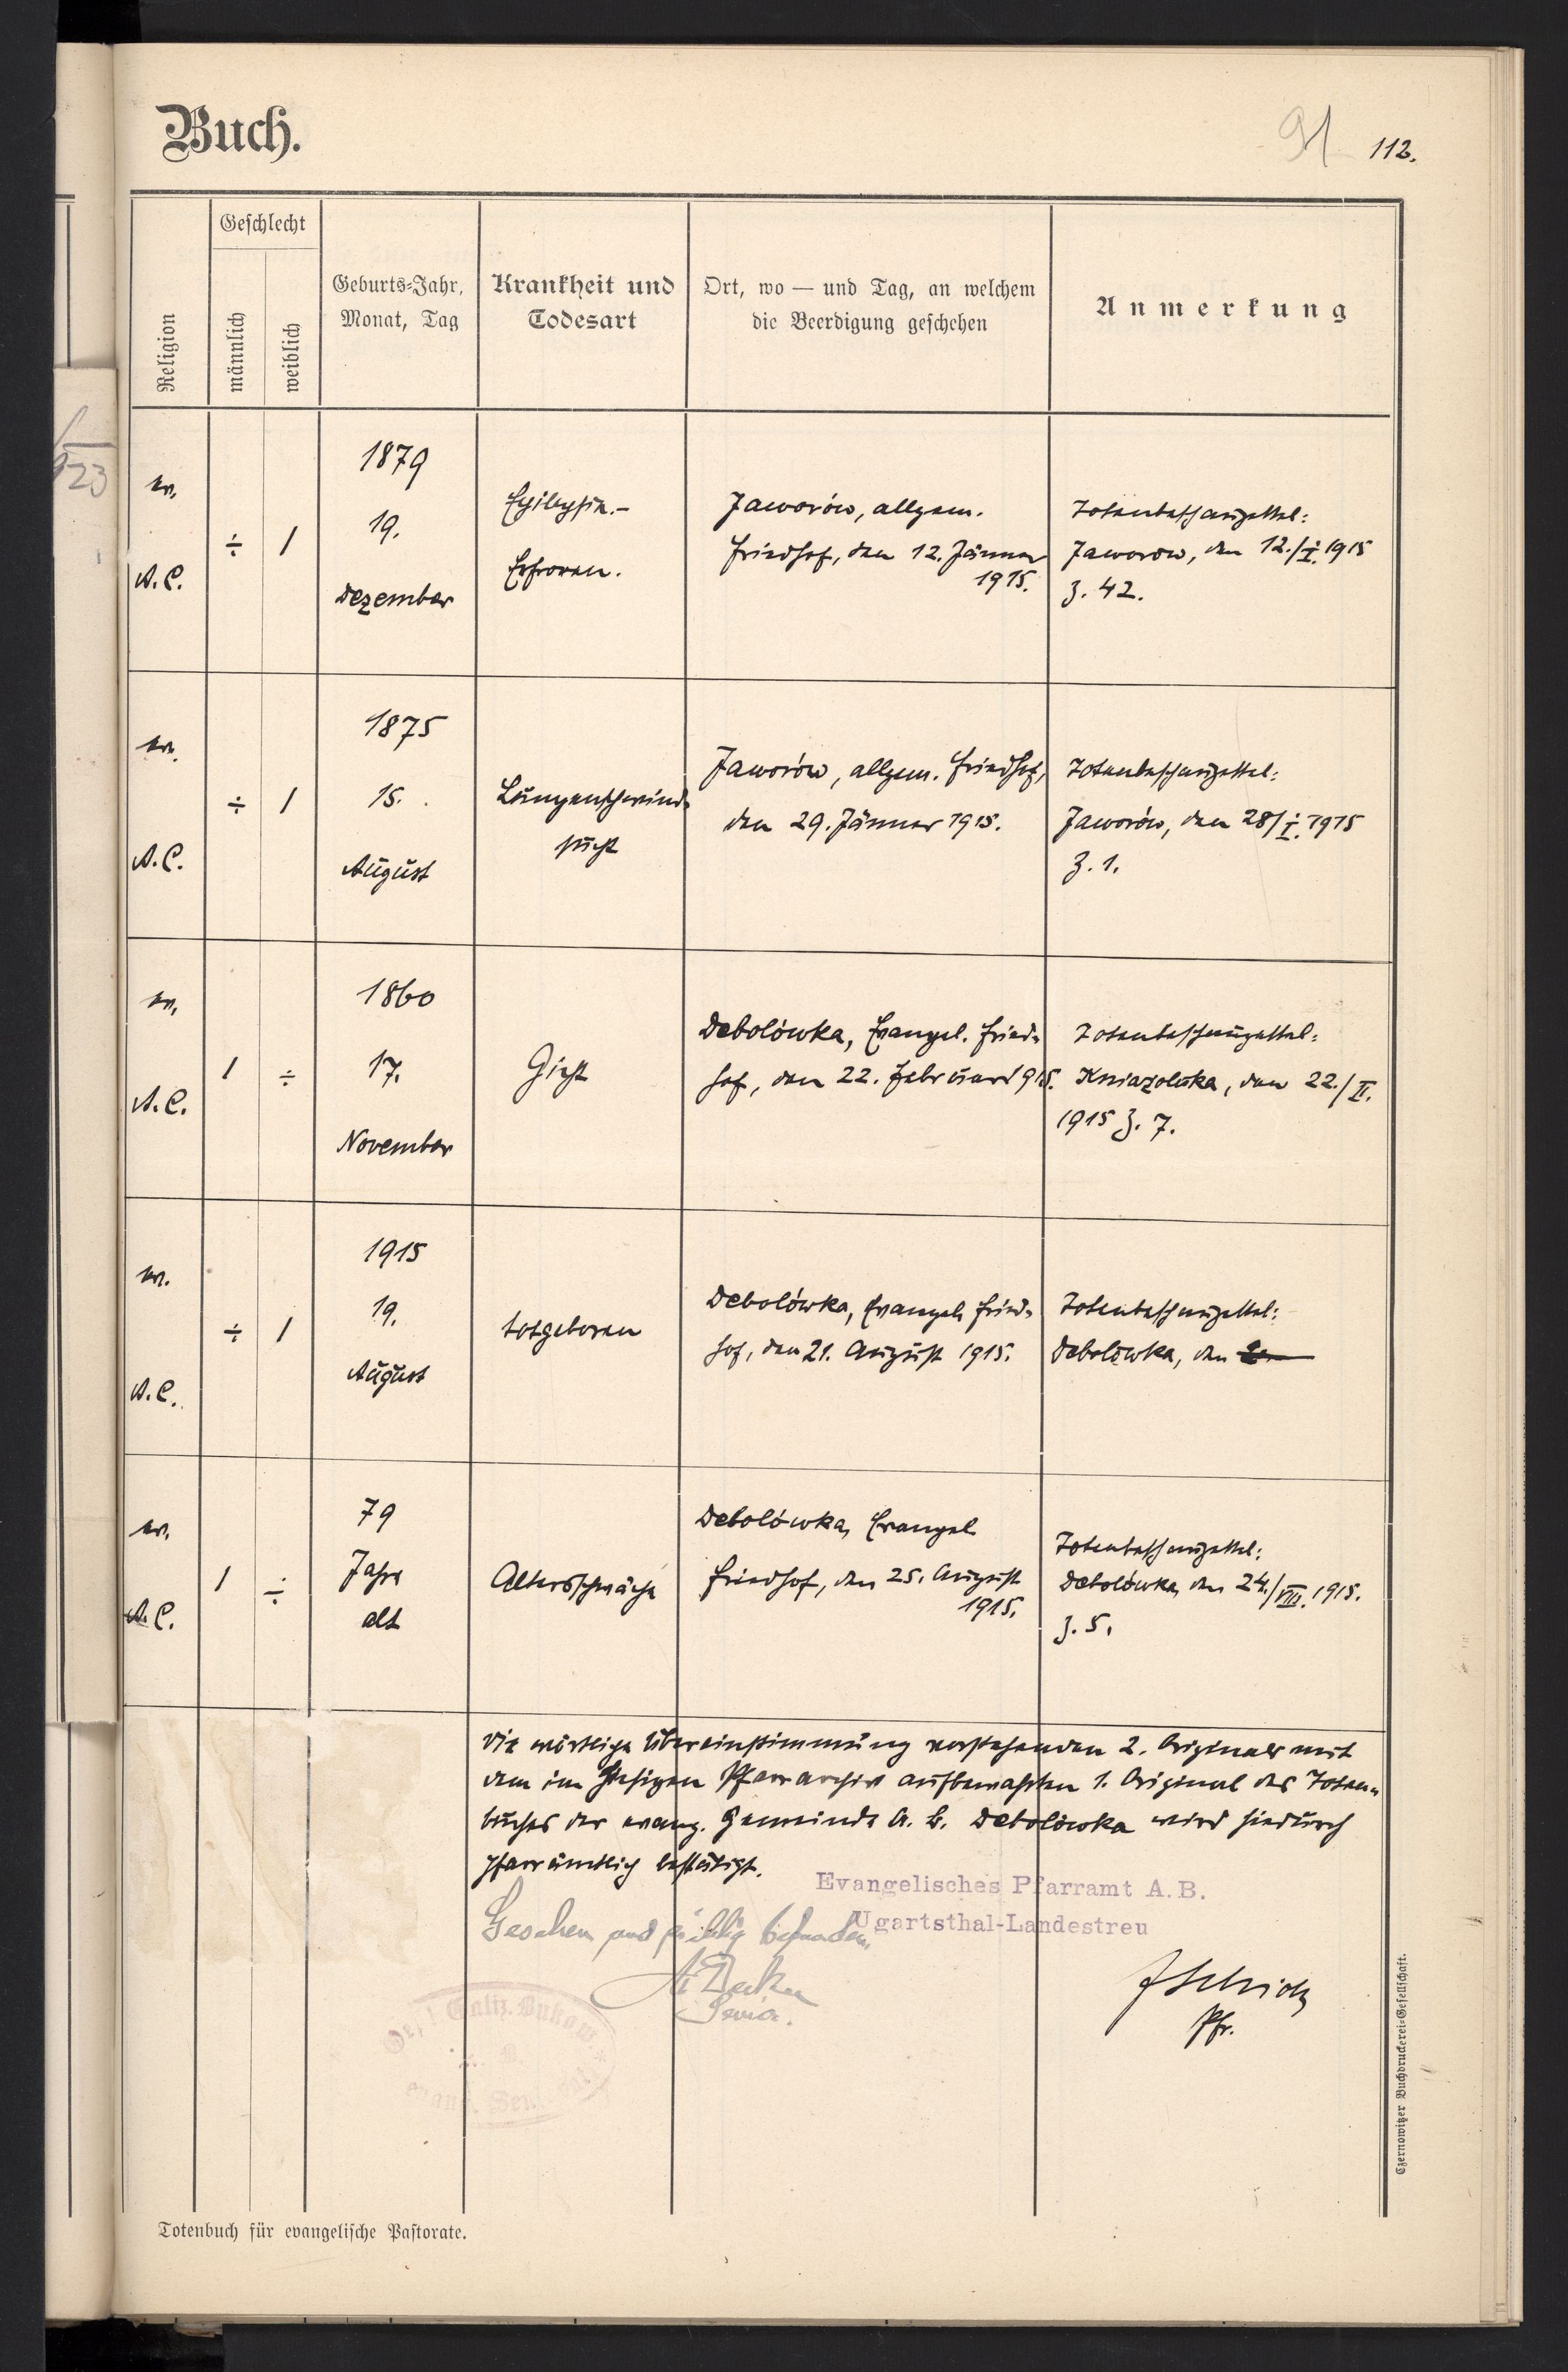 Buch.
91 112.
Religion
Geschlecht
männlich
weiblich
Geburts-Jahr,
Monat, Tag
Krankheit und
Todesart
Ort, wo — und Tag, an welchem
die Beerdigung geschehen
Anmerkung
23
ev.
A.C.
÷ /
1879
19.
Dezember
Epilepsie.-
Erfroren.
Jaworów, allgem.
Friedhof, den 12. Jänner
1915.
Totenbeschauzettel:
Jaworow, den 12./I. 1915
Z. 42.
ev.
A.C.
÷ /
1875
15.
August
Lungenschwind-
sucht
Jaworów, allgem. Friedhof,
den 29. Jänner 1915.
Totenbeschauzettel:
Jaworów, den 28/I. 1915
Z. 1.
ev.
A.C.
/ ÷
1860
17.
November
Gicht
Debolówka, Evangel. Fried-
hof, den 22. Februar 1915.
Totenbeschauzettel:
Kniazoluka, den 22./II.
1915 Z. 7.
ev.
A.C.
÷ /
1915
19.
August
totgeboren
Debolówka, Evangel. Fried-
hof, den 21. August 1915.
Totenbeschauzettel:
Debolówka, den
ev.
A.C.
/ ÷
79
Jahre
alt
Altersschwäche
Debolówka, Evangel.
Friedhof, den 25. August
1915.
Totenbeschauzettel:
Debolówka, den 24./VIII. 1915.
Z. 5.
Die wörtliche Übereinstimmung vorstehenden 2. Originals mit
dem im hiesigen Pfarrarchiv aufbewahrten 1. Original des Toten-
buches der evang. Gemeinde A. B. Debolówka wird hiedurch
pfarrämtlich bestätigt.
Evangelisches Pfarramt A.B.
Ugartsthal-Landestreu
Gesehen und richtig befunden.
Senior.
Galiz. Bukow.
Pfr.
Czernowitzer Buchdruckerei-Gesellschaft.
Totenbuch für evangelische Pastorate.